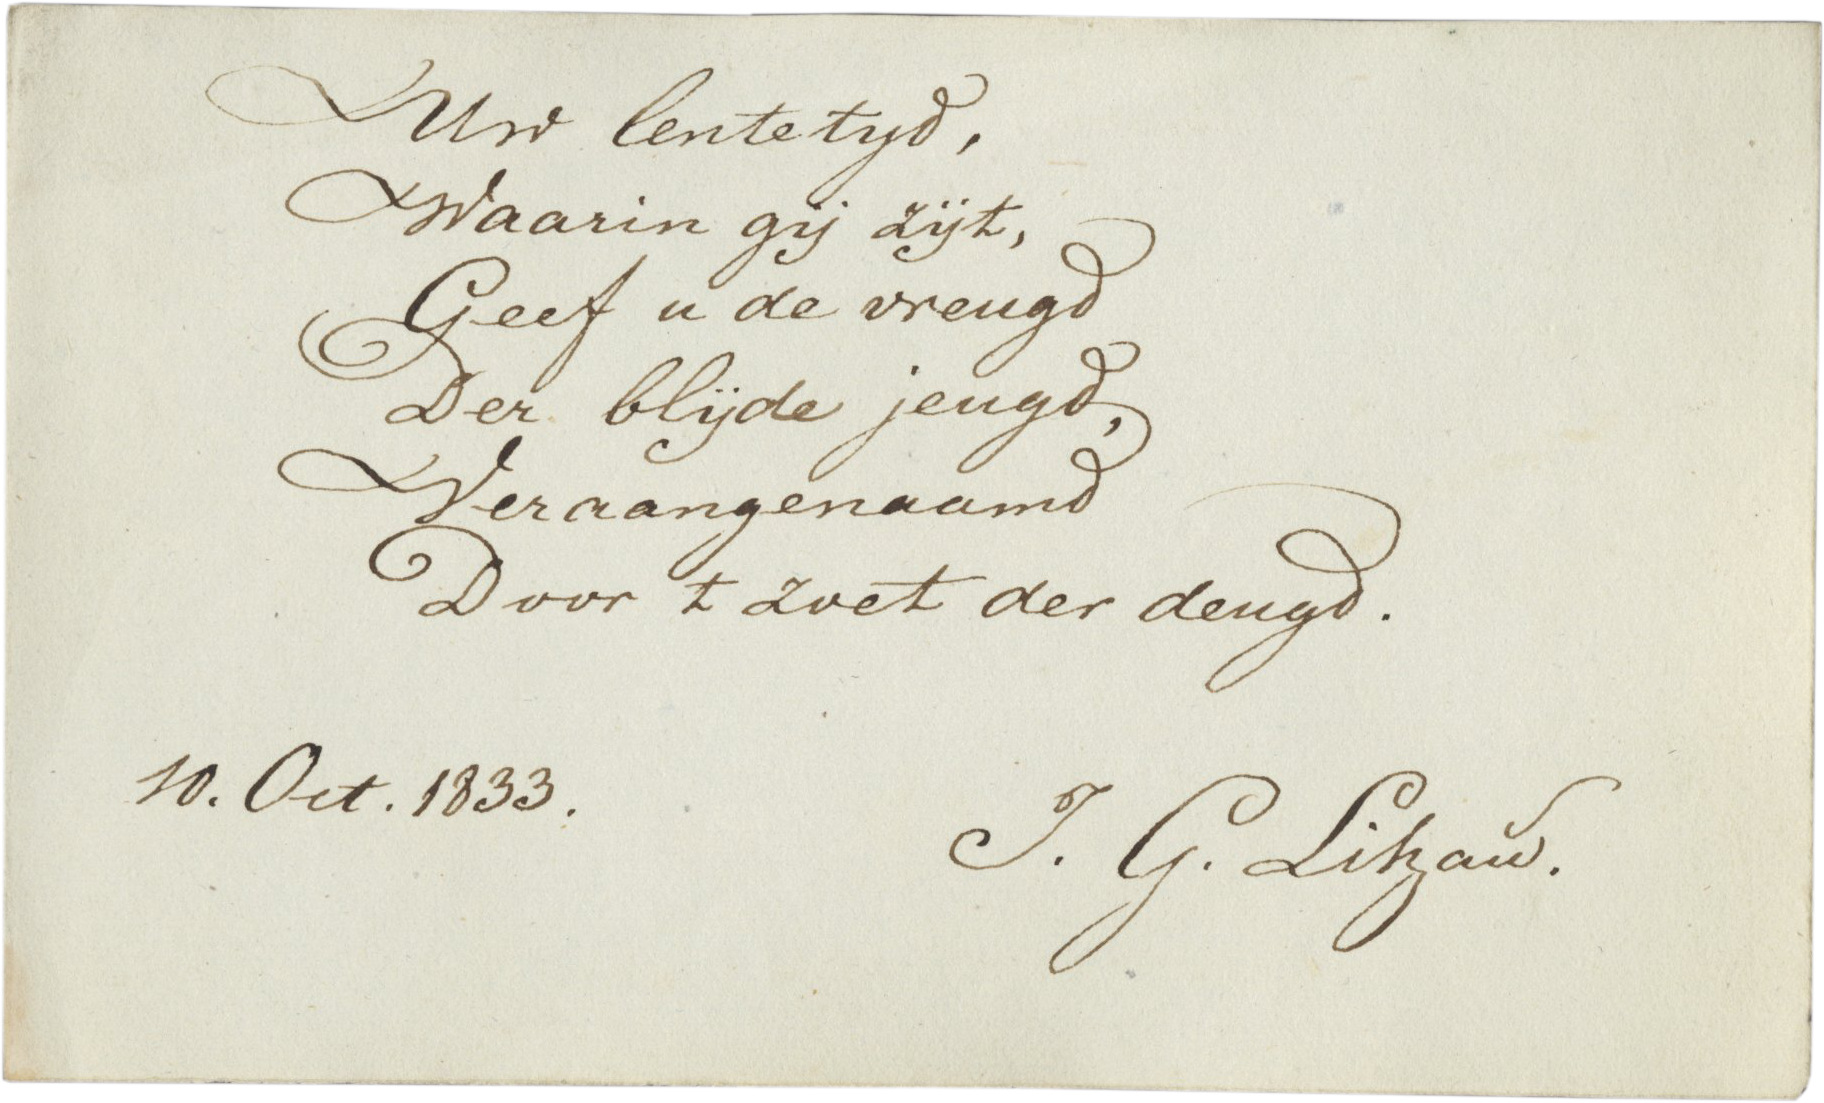 Uw lentetyd,
Waarin gij zijt,
Geef u de vreugd
Der blijde jeugd,
Veraangenaamd
Door t zoet der deugd.
10. Oct. 1833.
J. G. Litzau.